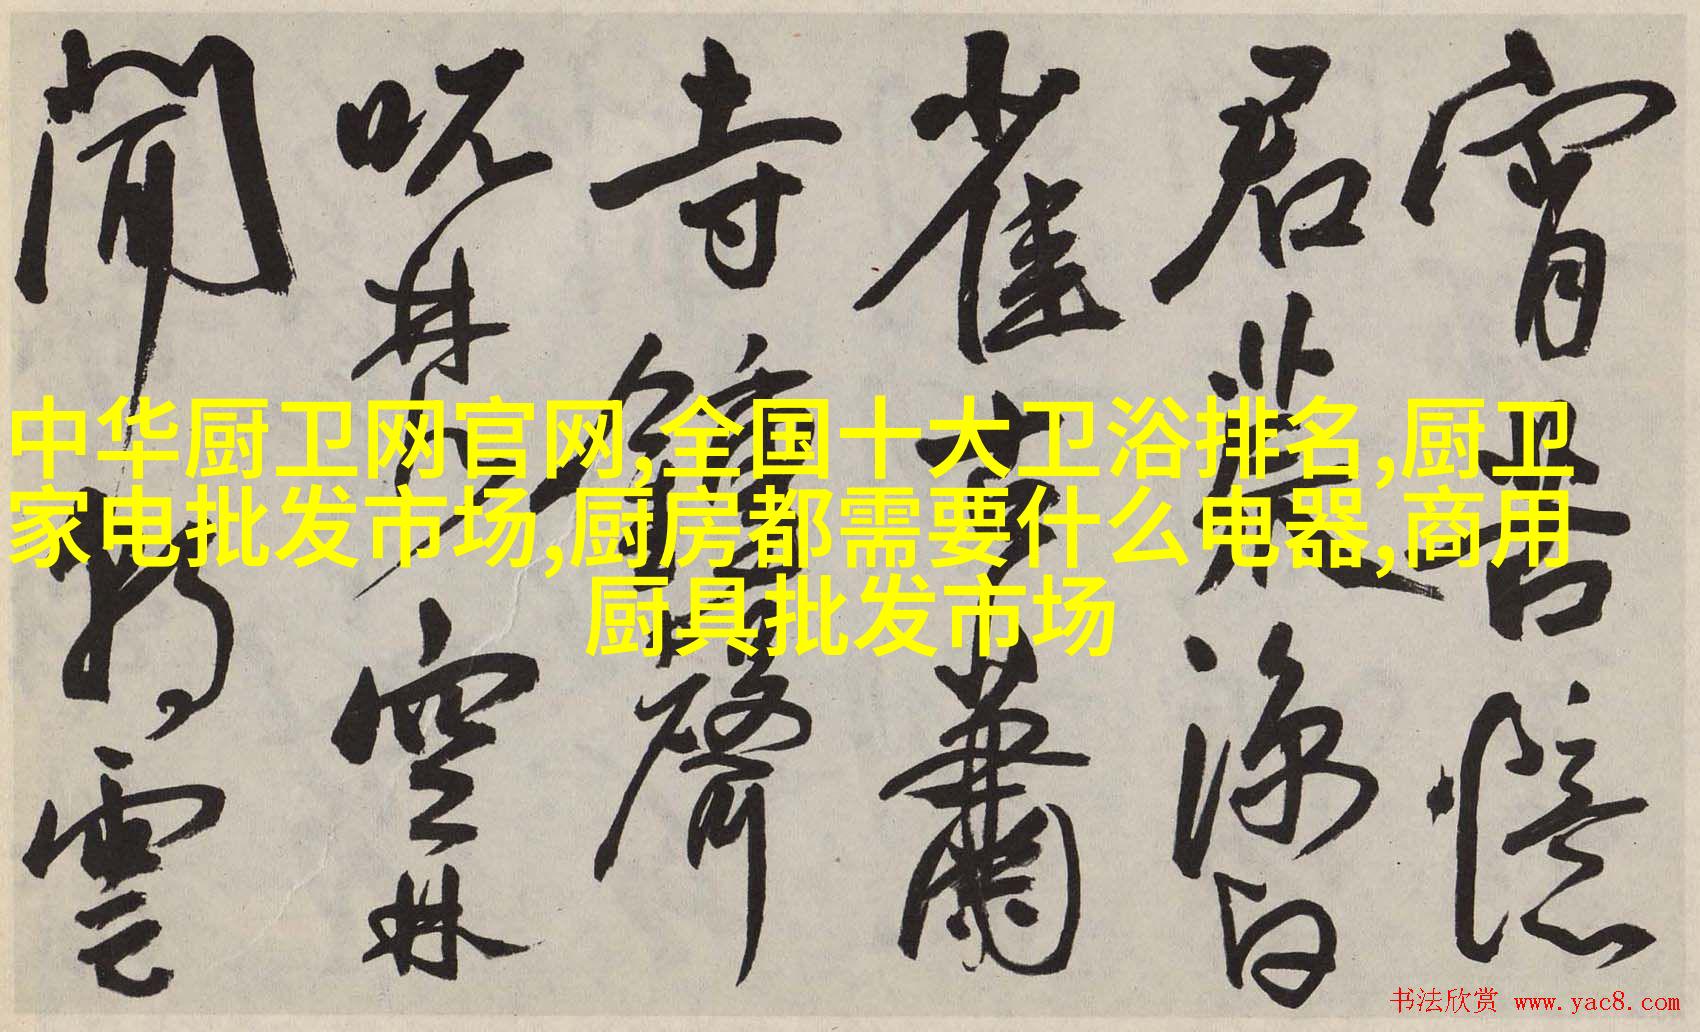 中华厨卫网官网,全国十大卫浴排名,厨卫
家电批发市场,厨房都需要什么电器,商用
厨具批发市场
宵昔憶
君裴深
雀蕭
寺鐘聲
空林
聞雲
书法欣赏 www.yac8.com